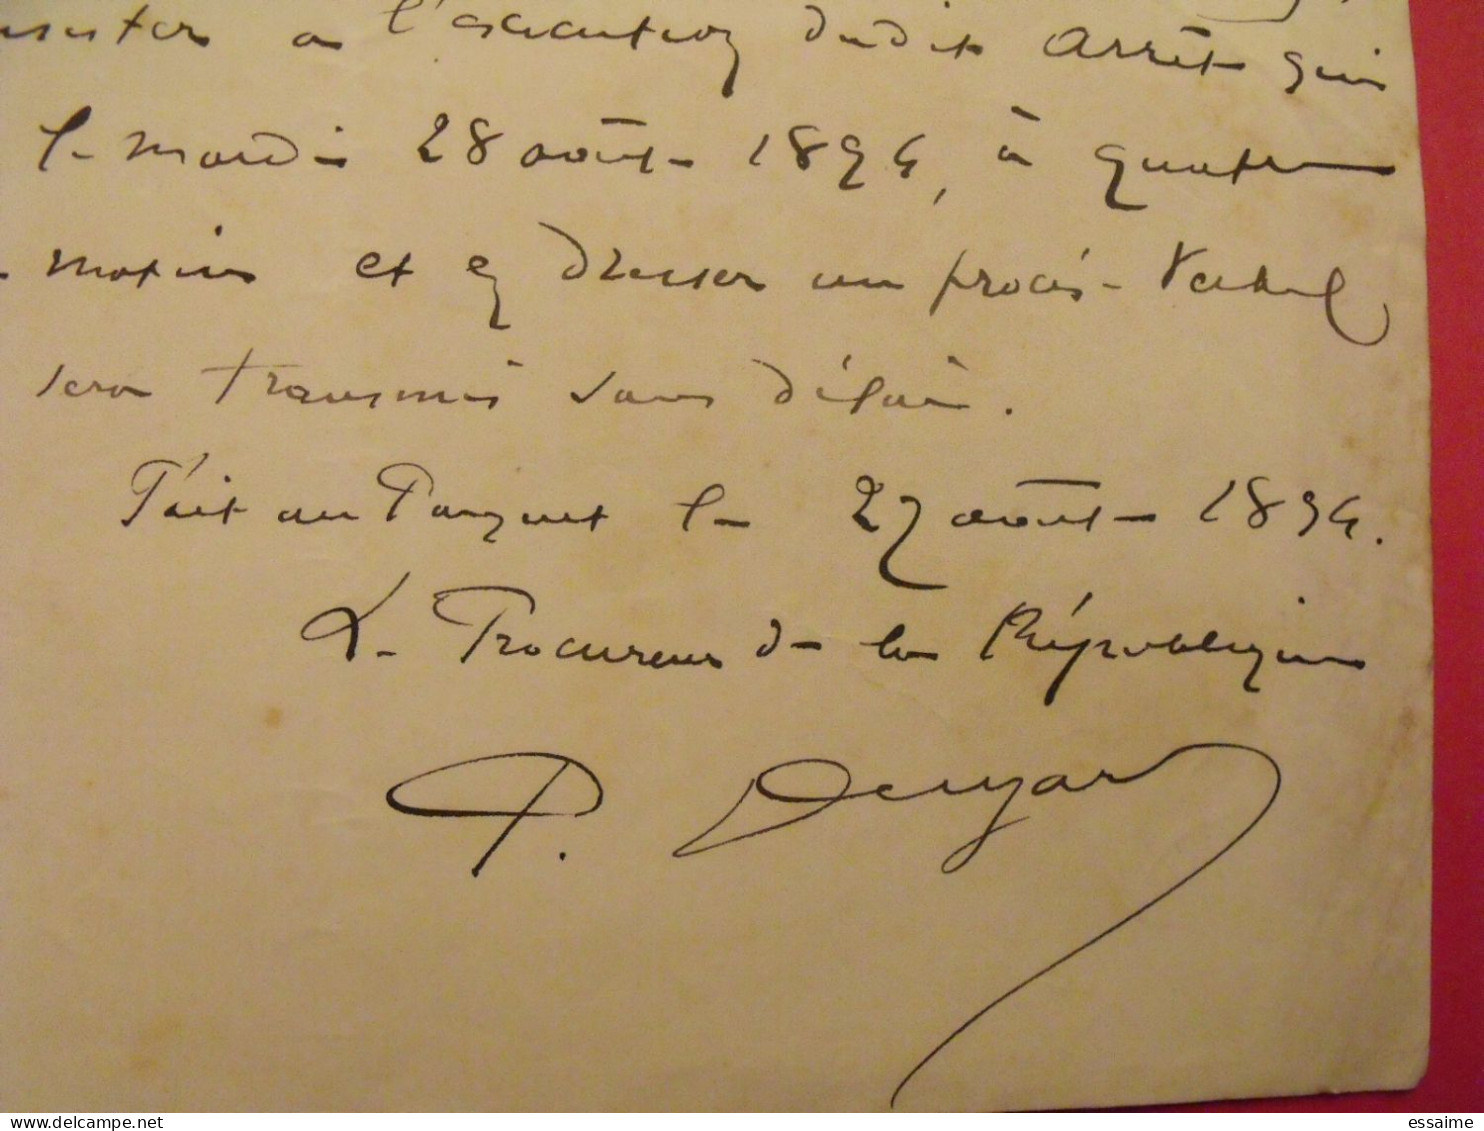 à l'exécution dudit arrêt qui
le mardi 28 août 1894, à quatre
matin et en dresser un procès-verbal
sera transmis sans délai.
Fait au Parquet le 27 août 1894.
Le Procureur de la République
P.
delcampe.net
essaime